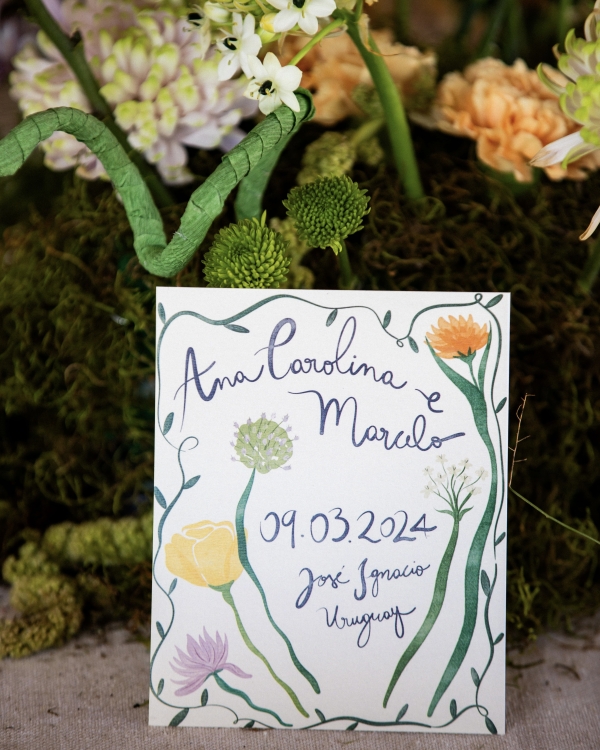 Ana Carolina e
Marcelo
09.03.2024
José Ignacio
Uruguay